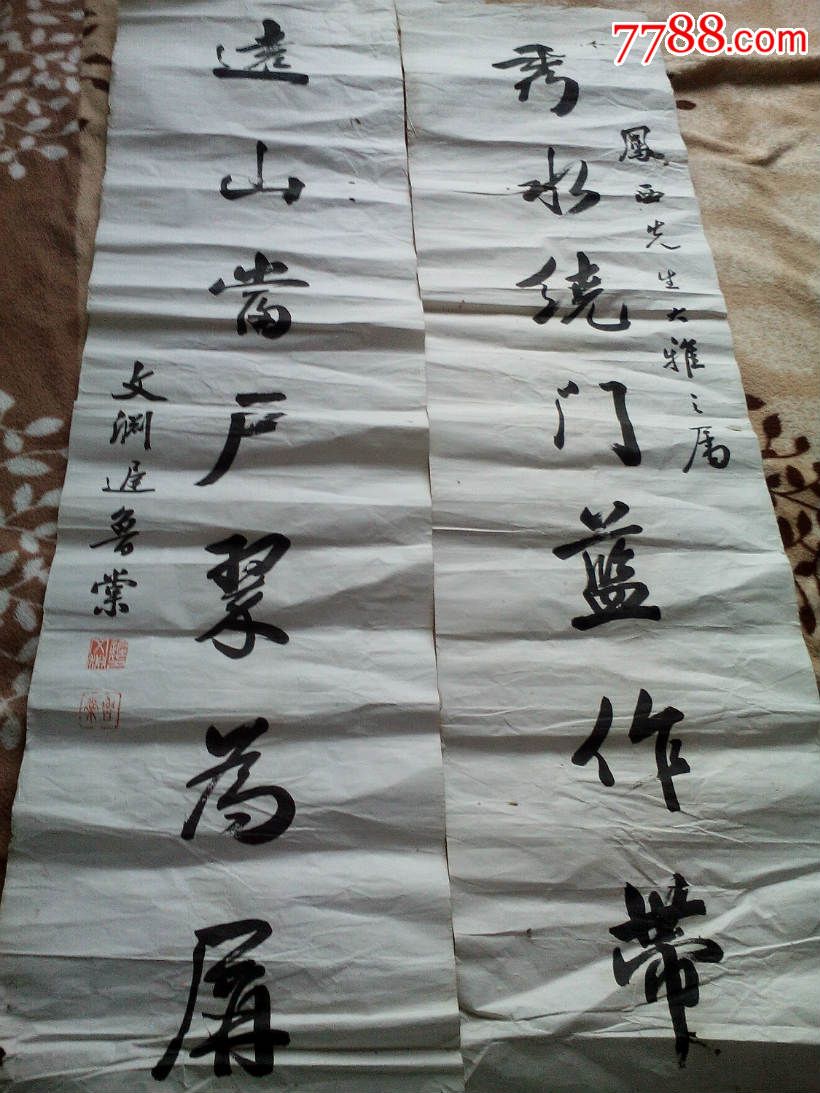 7788.com
鳳西先生大雅之属
秀水绕门蓝作带
遠山當户翠為屏
文渊遅魯棠